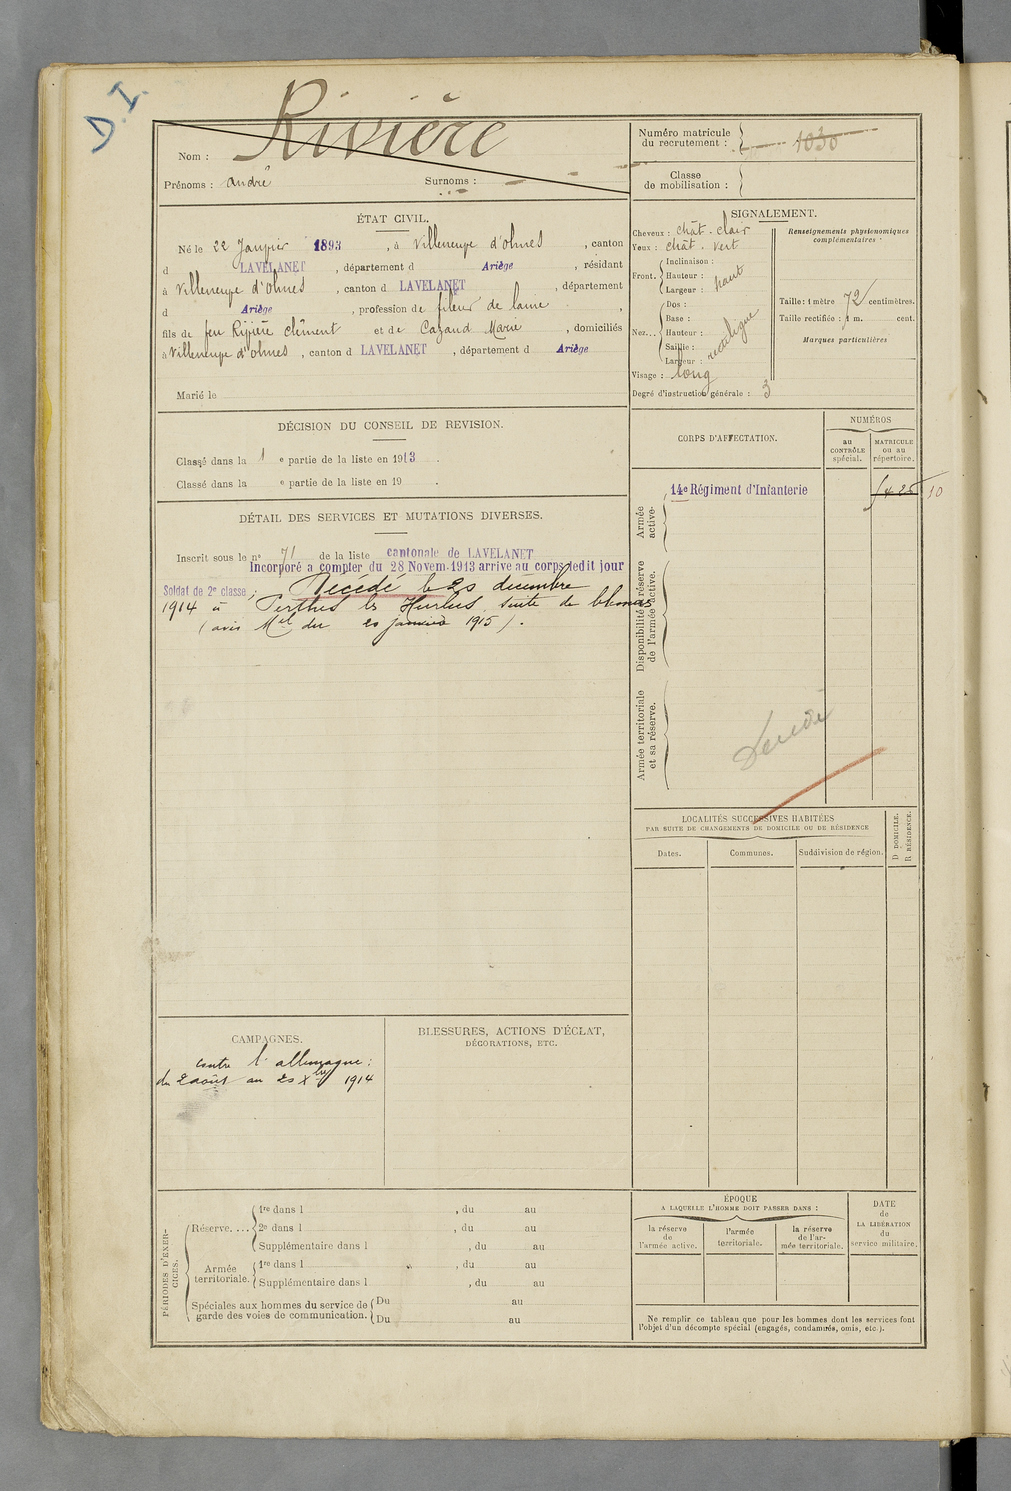 D.I.
Rivière
Nom :
Prénoms : André Surnoms :
Numéro matricule
du recrutement : 1030
Classe
de mobilisation :
ÉTAT CIVIL.
Né le 22 Janvier 1893, à Villeneuve d'Olmes, canton
d LAVELANET, département d Ariège, résidant
à Villeneuve d'Olmes, canton d LAVELANET, département
d Ariège, profession de fileur de laine,
fils de feu Rivière Clément et de Cazaud Marie, domiciliés
à Villeneuve d'Olmes, canton d LAVELANET, département d Ariège
Marié le
SIGNALEMENT.
Cheveux : chât. clair
Yeux : chât. vert
Front. Inclinaison :
Hauteur : haut
Largeur :
Nez... Dos : rectiligne
Base :
Hauteur :
Saillie :
Largeur :
Visage : long
Degré d'instruction générale : 3
Renseignements physionomiques
complémentaires :
Taille : 1 mètre 72 centimètres.
Taille rectifiée : 1 m. cent.
Marques particulières
DÉCISION DU CONSEIL DE REVISION.
Classé dans la 1 e partie de la liste en 1913.
Classé dans la e partie de la liste en 19 .
DÉTAIL DES SERVICES ET MUTATIONS DIVERSES.
Inscrit sous le n° 71 de la liste cantonale de LAVELANET
Incorporé a compter du 28 Novem. 1913 arrive au corps ledit jour
Soldat de 2e classe ; Décédé le 20 décembre
1914 à Perthes les Hurlus, suite de blessures
(avis Mel du 20 janvier 1915).
CORPS D'AFFECTATION.
NUMÉROS
au
CONTRÔLE
spécial.
MATRICULE
ou au
répertoire.
Armée
active.
14e Régiment d'Infanterie 5425 10
Disponibilité et réserve
de l'armée active.
Armée territoriale
et sa réserve.
Décédé
LOCALITÉS SUCCESSIVES HABITÉES
PAR SUITE DE CHANGEMENTS DE DOMICILE OU DE RÉSIDENCE
Dates.
Communes.
Subdivision de région.
D DOMICILE.
R RÉSIDENCE.
CAMPAGNES.
contre l'allemagne :
du 2 août au 20 Xbre 1914
BLESSURES, ACTIONS D'ÉCLAT,
DÉCORATIONS, ETC.
PÉRIODES D'EXER-
CICES.
Réserve.... 1re dans l , du au
2e dans l , du au
Supplémentaire dans l , du au
Armée
territoriale. 1re dans l , du au
Supplémentaire dans l , du au
Spéciales aux hommes du service de
garde des voies de communication. Du au
Du au
ÉPOQUE
A LAQUELLE L'HOMME DOIT PASSER DANS :
la réserve
de
l'armée active.
l'armée
territoriale.
la réserve
de l'ar-
mée territoriale.
DATE
de
LA LIBÉRATION
du
service militaire.
Ne remplir ce tableau que pour les hommes dont les services font
l'objet d'un décompte spécial (engagés, condamnés, omis, etc.).